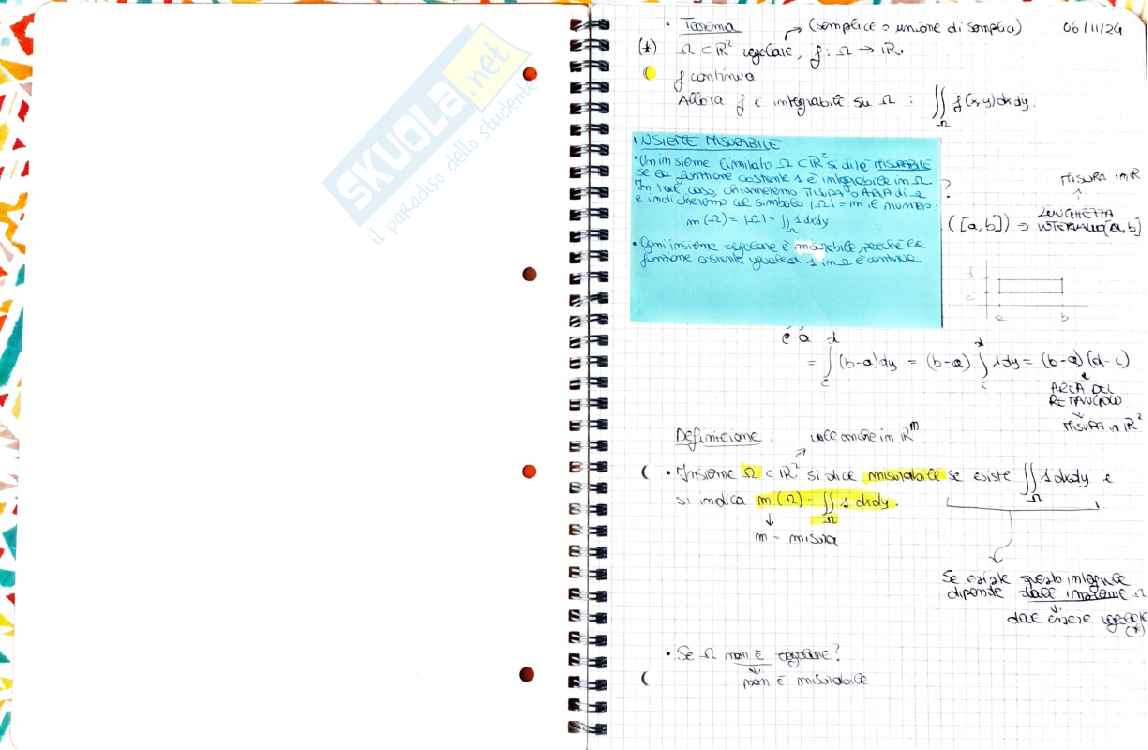 SKUOLA.net
il paradiso dello studente
06/11/24
• Teorema
(semplice o unione di semplici)
(*) Ω ⊂ ℝ² regolare, f: Ω → ℝ.
f continua
Allora f è integrabile su Ω : ∬_Ω f(x,y)dxdy.
INSIEME MISURABILE
• Un insieme limitato Ω ⊂ ℝ² si dice MISURABILE
se la funzione costante 1 è integrabile in Ω.
In tal caso, chiameremo MISURA o AREA di Ω
e indicheremo col simbolo |Ω| = m, il numero:
m(Ω) = |Ω| = ∬_Ω 1dxdy
• Ogni insieme regolare è misurabile, perché la
funzione costante uguale a 1 in Ω è continua
?
MISURA in ℝ
([a,b]) → LUNGHEZZA
INTERVALLO [a,b]
d
c
a b
c a
= ∫_c^d (b-a)dy = (b-a) ∫_c^d 1dy = (b-a)(d-c)
AREA DEL
RETTANGOLO
MISURA in ℝ²
Definizione
vale anche in ℝᵐ
• Insieme Ω ⊂ ℝ² si dice misurabile se esiste ∬_Ω 1dxdy e
si indica m(Ω) = ∬_Ω 1 dxdy.
m = misura
Se esiste questo integrale
dipende dall'insieme Ω
deve essere regolare
(*)
• Se Ω non è regolare?
non è misurabile